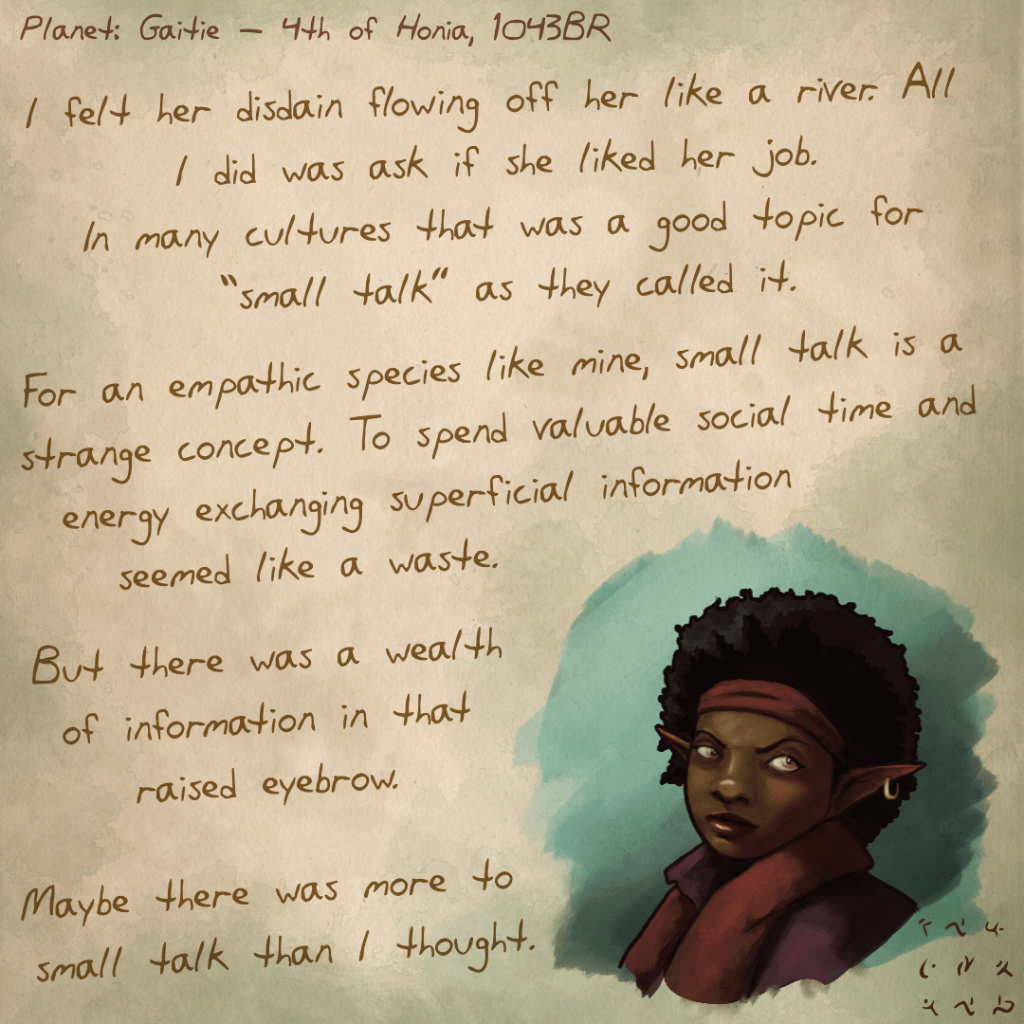 Planet: Gaitie – 4th of Honia, 1043BR
I felt her disdain flowing off her like a river. All
I did was ask if she liked her job.
In many cultures that was a good topic for
"small talk" as they called it.
For an empathic species like mine, small talk is a
strange concept. To spend valuable social time and
energy exchanging superficial information
seemed like a waste.
But there was a wealth
of information in that
raised eyebrow.
Maybe there was more to
small talk than I thought.